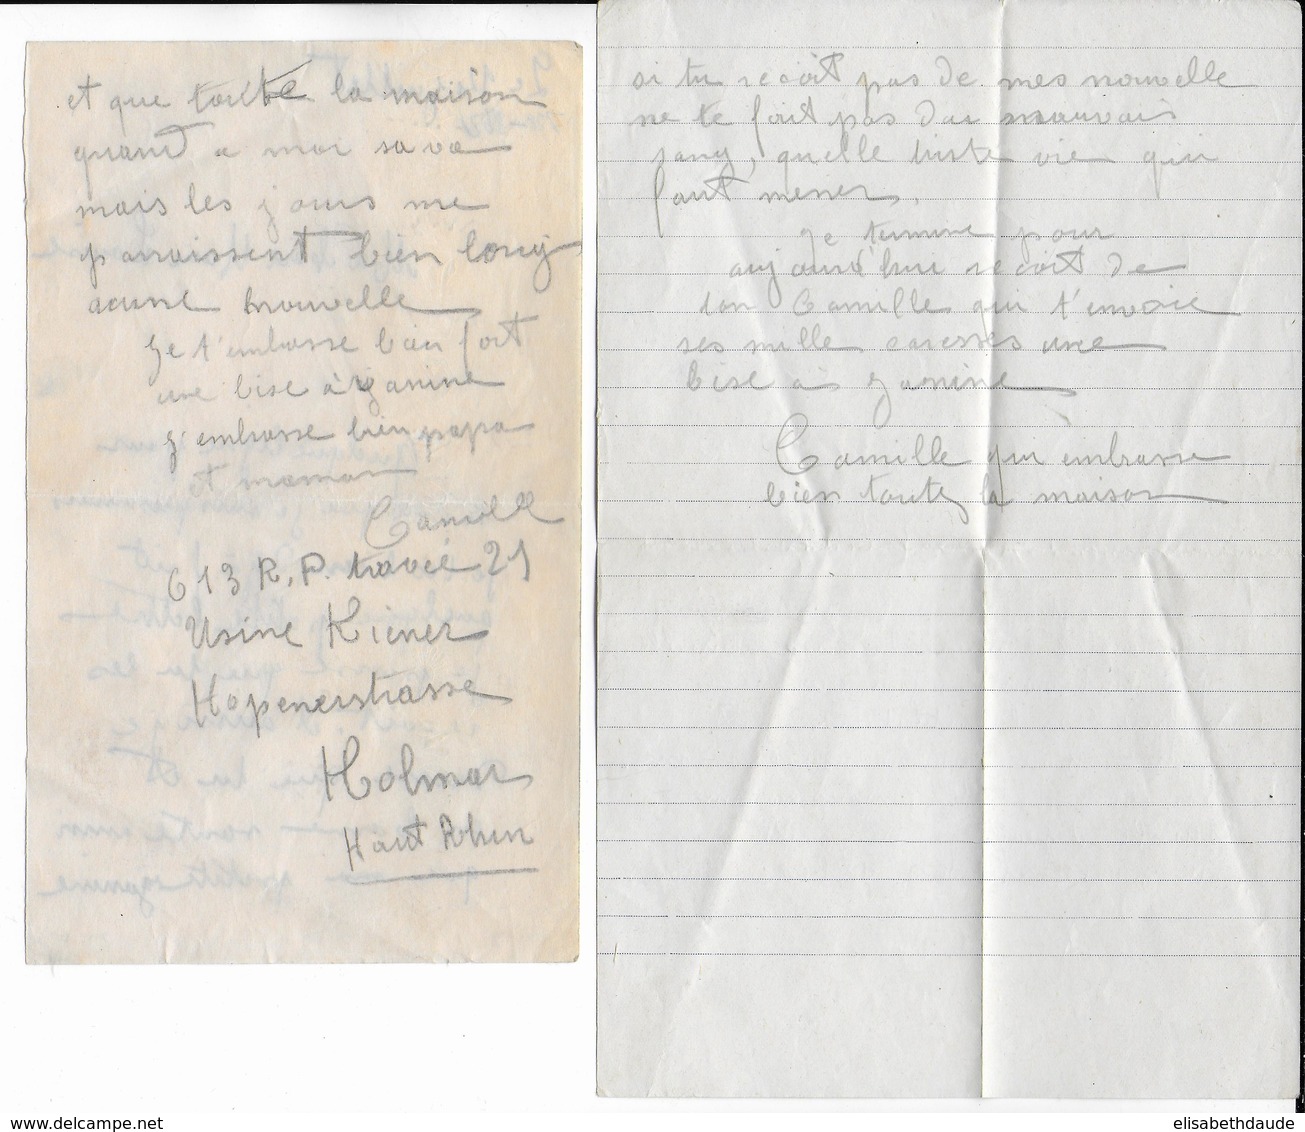 et que toute la maison
quant a moi sa va
mais les jours me
paraissent bien long
aucune nouvelle
Je t'embrasse bien fort
une bise à Janine
J'embrasse bien papa
et maman
Camille
613 R.P. travée 21
Usine Kiener
Hopenerstrasse
Holmar
Haut Rhin
si tu recoit pas de mes nouvelle
ne te fait pas du mauvais
sang, quelle triste vie qui
faut mener.
Je termine pour
aujourd'hui recoit de
ton Camille qui t'envoie
ses mille caresses une
bise a Janine
Camille qui embrasse
bien toute la maison
www.delcampe.net
elisabethdaude